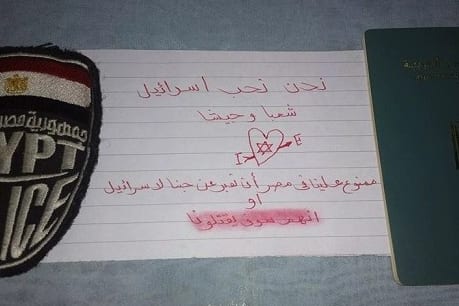 نحن نحب اسرائيل
شعبا وجيشا
I E
ممنوع علينا في مصر أن نعبر عن حبنا لاسرائيل
او
انهم سوف يقتلونا
جمهورية مصر
YPT
ICE